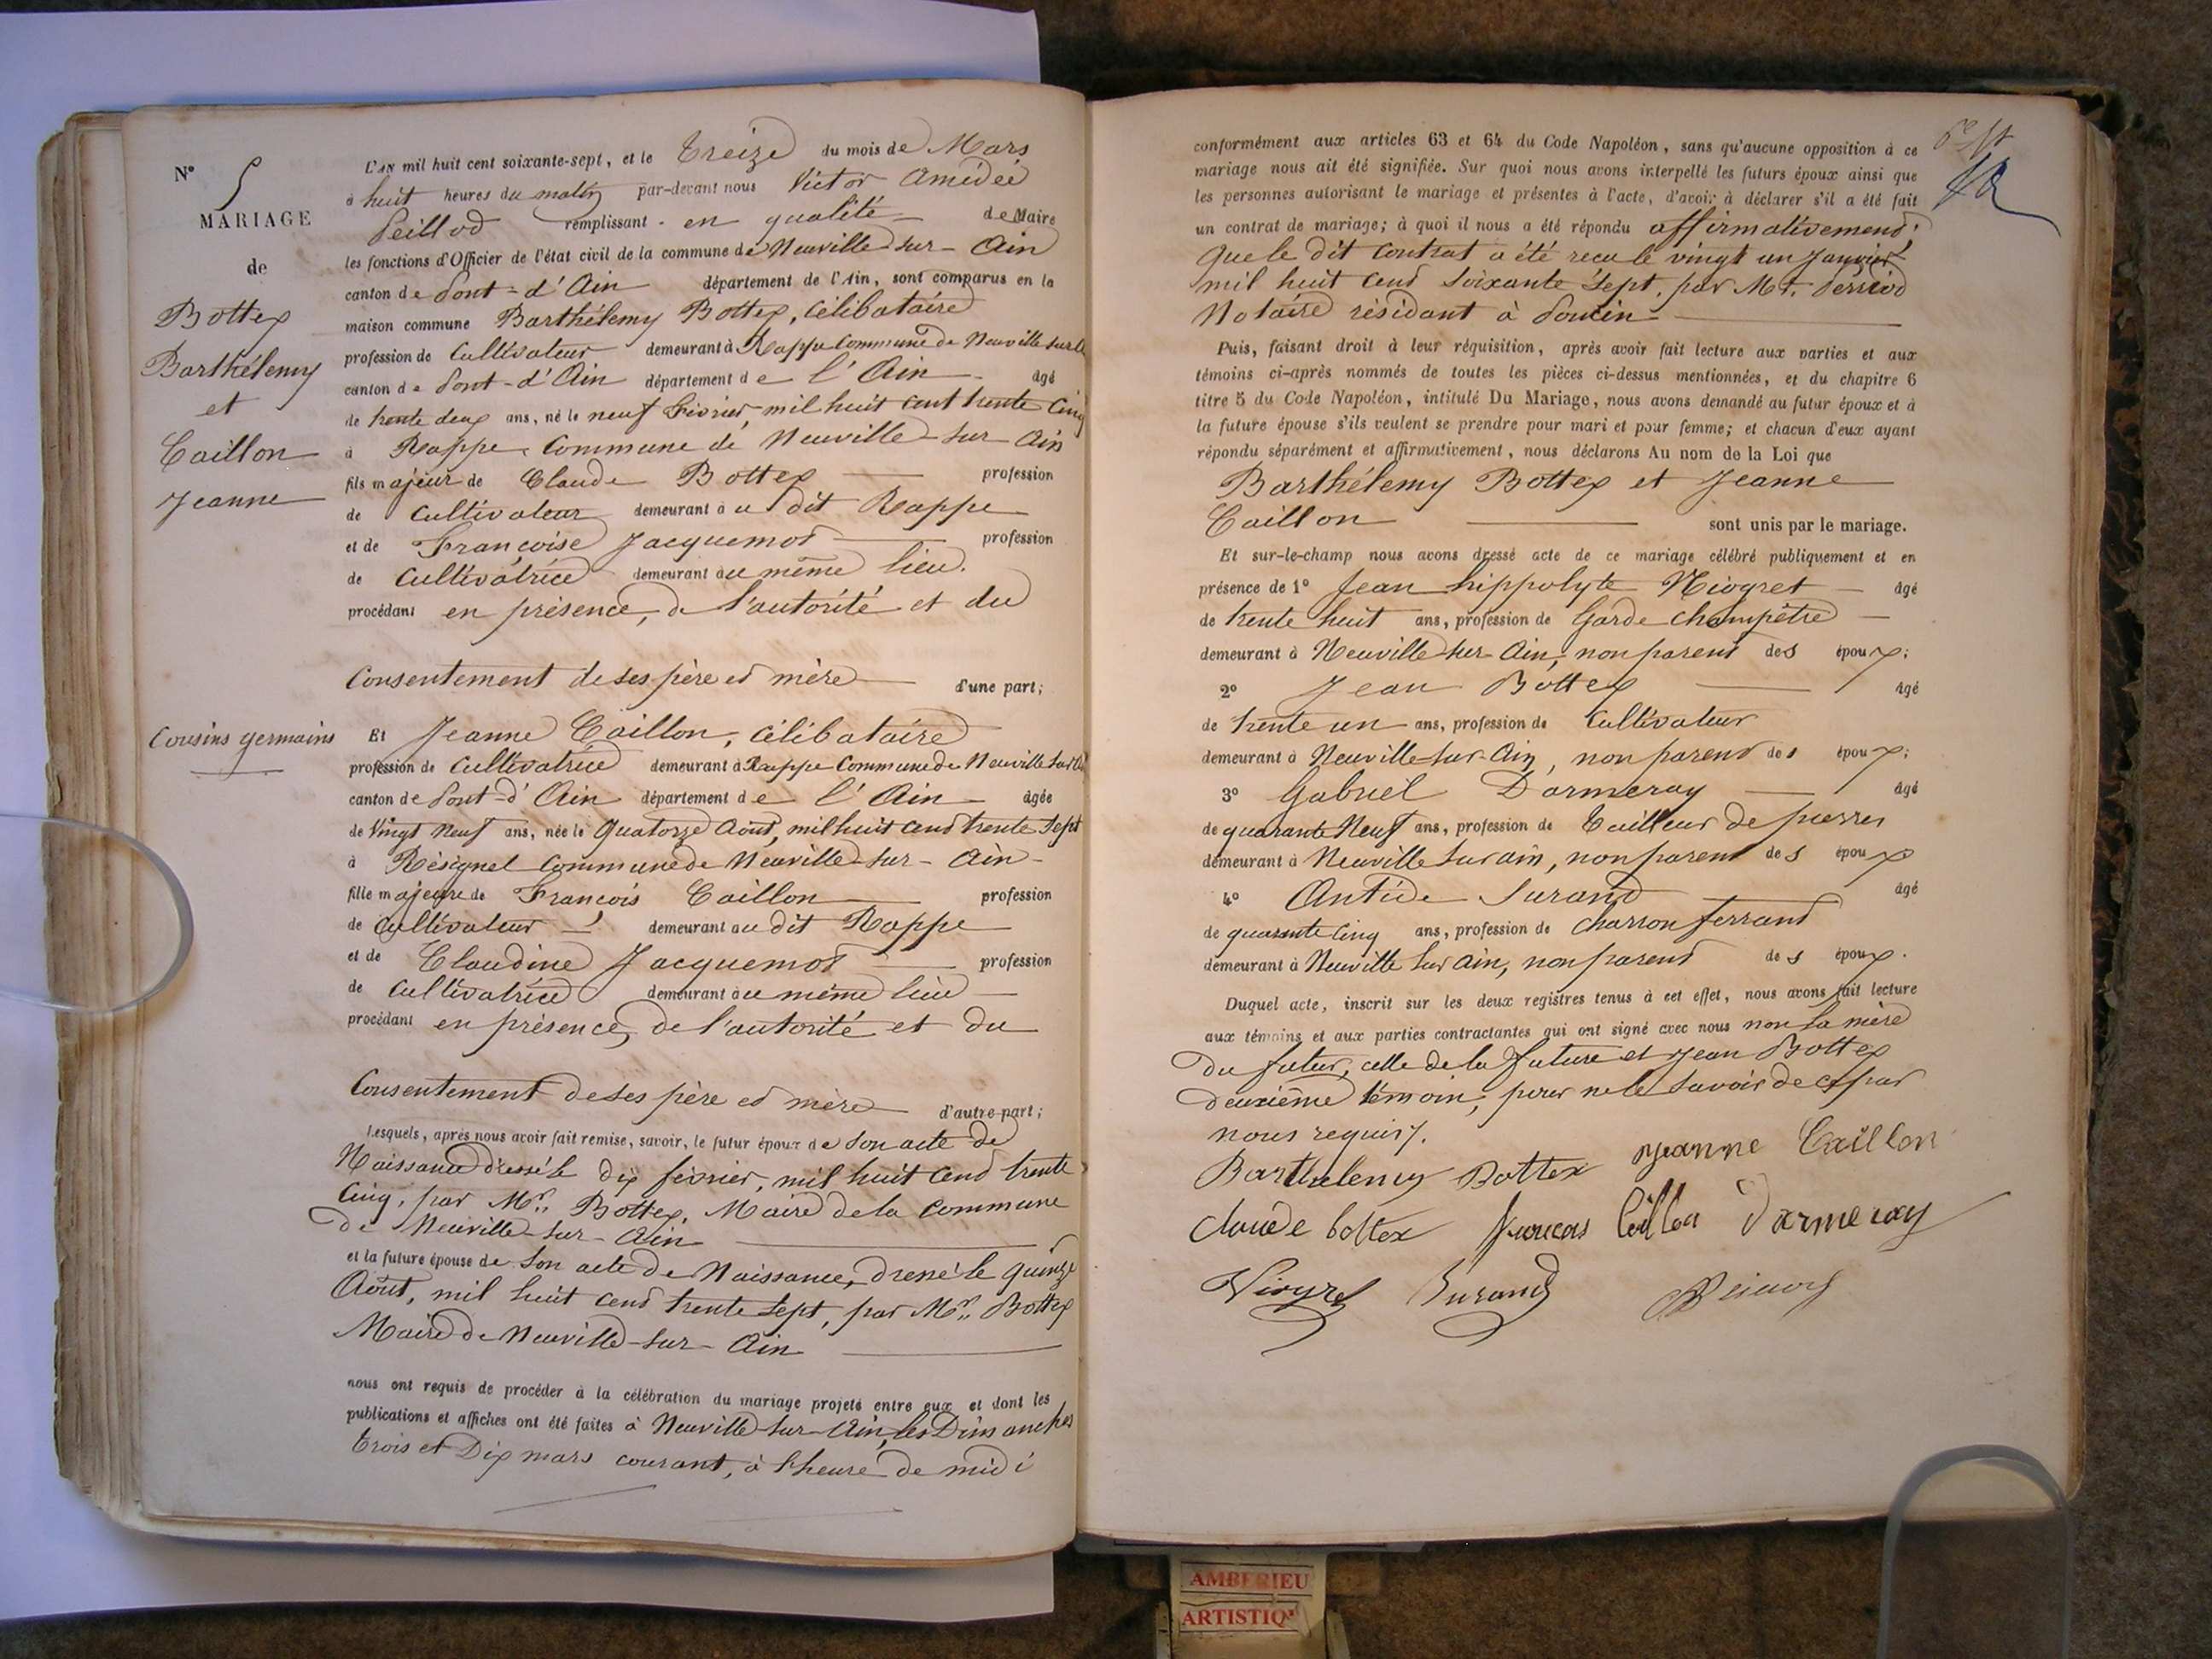 N° 5
MARIAGE
de
Bottex
Barthélemy
et
Caillon
Jeanne
Cousins germains
L'AN mil huit cent soixante-sept, et le treize du mois de Mars
à huit heures du matin par-devant nous Victor Amédée
Peillod remplissant en qualité de Maire
les fonctions d'Officier de l'état civil de la commune de Neuville-sur-Ain
canton de Pont-d'Ain département de l'Ain, sont comparus en la
maison commune Barthélemy Bottex, célibataire
profession de Cultivateur demeurant à Rappe Commune de Neuville sur
canton de Pont-d'Ain département de l'Ain âgé
de trente deux ans, né le neuf février mil huit cent trente cinq
à Rappe, Commune de Neuville-sur-Ain
fils majeur de Claude Bottex profession
de Cultivateur demeurant au dit Rappe
et de Françoise Jacquemot profession
de Cultivatrice demeurant au même lieu.
procédant en présence, de l'autorité et du
Consentement de ses père et mère d'une part;
Et Jeanne Caillon, célibataire
profession de Cultivatrice demeurant à Rappe Commune de Neuville sur
canton de Pont-d'Ain département de l'Ain âgée
de vingt neuf ans, née le Quatorze Août, mil huit cent trente sept
à Résignel Commune de Neuville-sur-Ain
fille majeure de François Caillon profession
de Cultivateur demeurant au dit Rappe
et de Claudine Jacquemot profession
de Cultivatrice demeurant au même lieu
procédant en présence, de l'autorité et du
Consentement de ses père et mère d'autre part;
Lesquels, après nous avoir fait remise, savoir, le futur époux de son acte de
Naissance dressé le dix février, mil huit cent trente
cinq, par Mr. Bottex, Maire de la Commune
de Neuville-sur-Ain
et la future épouse de son acte de Naissance, dressé le quinze
Août, mil huit cent trente sept, par Mr. Bottex
Maire de Neuville-sur-Ain
nous ont requis de procéder à la célébration du mariage projeté entre eux et dont les
publications et affiches ont été faites à Neuville-sur-Ain, les Dimanches
trois et Dix mars courant, à l'heure de midi
conformément aux articles 63 et 64 du Code Napoléon, sans qu'aucune opposition à ce
mariage nous ait été signifiée. Sur quoi nous avons interpellé les futurs époux ainsi que
les personnes autorisant le mariage et présentes à l'acte, d'avoir à déclarer s'il a été fait
un contrat de mariage; à quoi il nous a été répondu affirmativement;
Que le dit contrat a été reçu le vingt un Janvier
mil huit cent soixante sept, par Mt.
Notaire résidant à Poncin
Puis, faisant droit à leur réquisition, après avoir fait lecture aux parties et aux
témoins ci-après nommés de toutes les pièces ci-dessus mentionnées, et du chapitre 6
titre 5 du Code Napoléon, intitulé Du Mariage, nous avons demandé au futur époux et à
la future épouse s'ils veulent se prendre pour mari et pour femme; et chacun d'eux ayant
répondu séparément et affirmativement, nous déclarons Au nom de la Loi que
Barthélemy Bottex et Jeanne
Caillon sont unis par le mariage.
Et sur-le-champ nous avons dressé acte de ce mariage célébré publiquement et en
présence de 1° Jean hippolyte Niogret âgé
de trente huit ans, profession de Garde champêtre
demeurant à Neuville-sur-Ain, non parent des époux;
2° Jean Bottex âgé
de trente un ans, profession de Cultivateur
demeurant à Neuville-sur-Ain, non parent des époux;
3° Gabriel Darmeray âgé
de quarante Neuf ans, profession de Tailleur de pierres
demeurant à Neuville sur ain, non parent des époux
4° Antide Surand âgé
de quarante cinq ans, profession de charron ferrant
demeurant à Neuville sur ain, non parent des époux.
Duquel acte, inscrit sur les deux registres tenus à cet effet, nous avons fait lecture
aux témoins et aux parties contractantes qui ont signé avec nous non la mère
du futur, celle de la future et Jean Bottex
deuxième témoin, pour ne le savoir de ce par
nous requis.
Barthelemy Bottex Jeanne Caillon
claude bottex francois Caillon Darmeray
Niogret Surand
AMBERIEU
ARTISTIQ